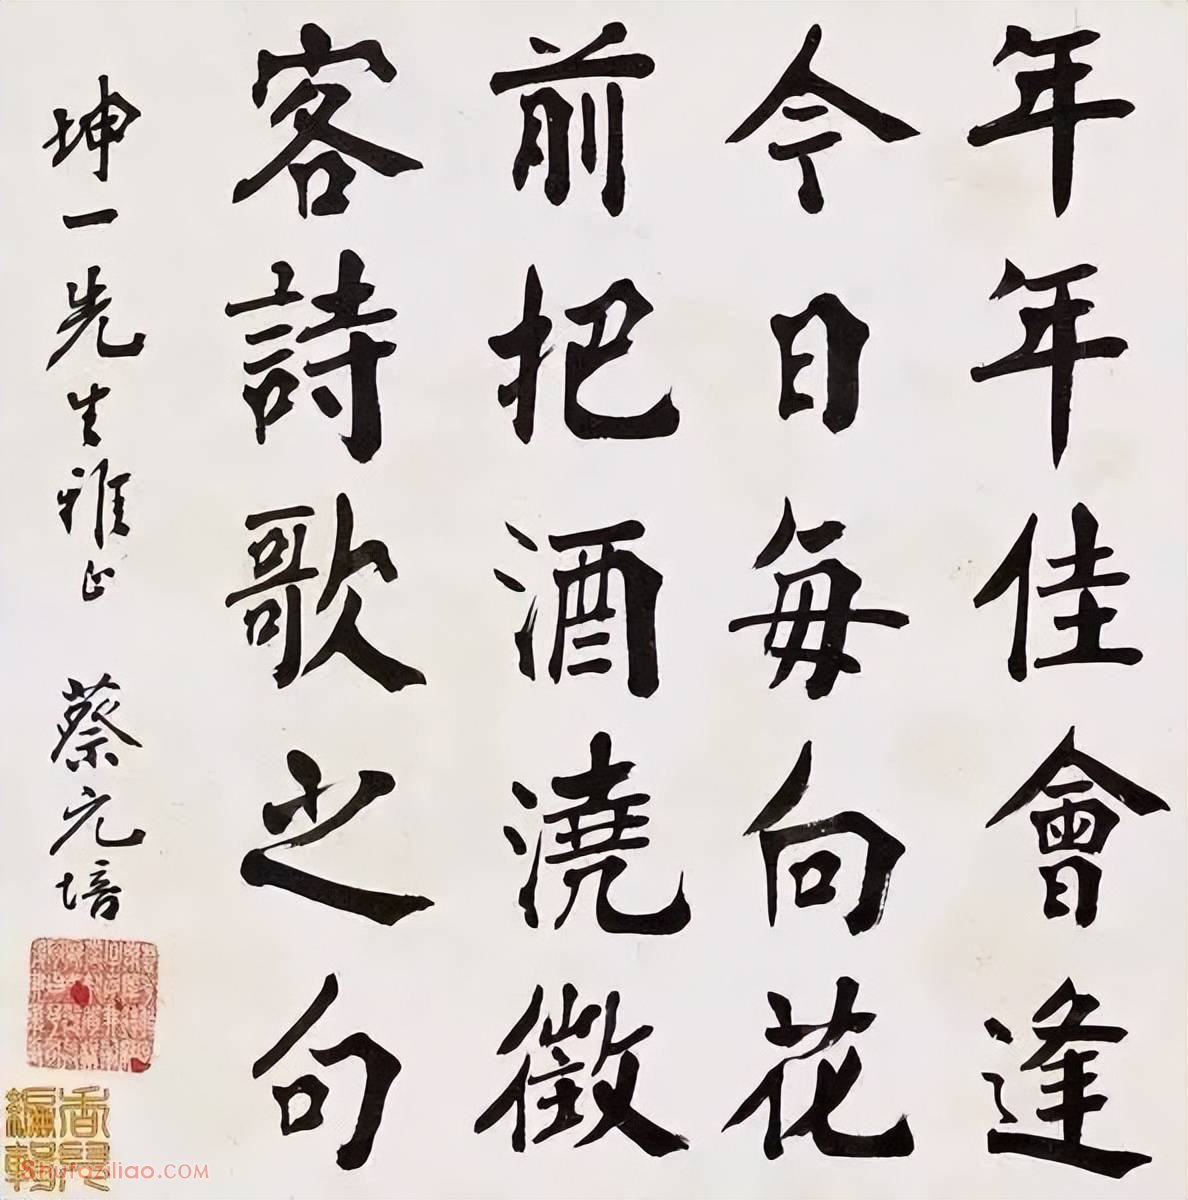 年年佳會逢
今日每向花
前把酒澆徵
客詩歌之句
坤一先生雅正 蔡元培
Shufaziliao.COM